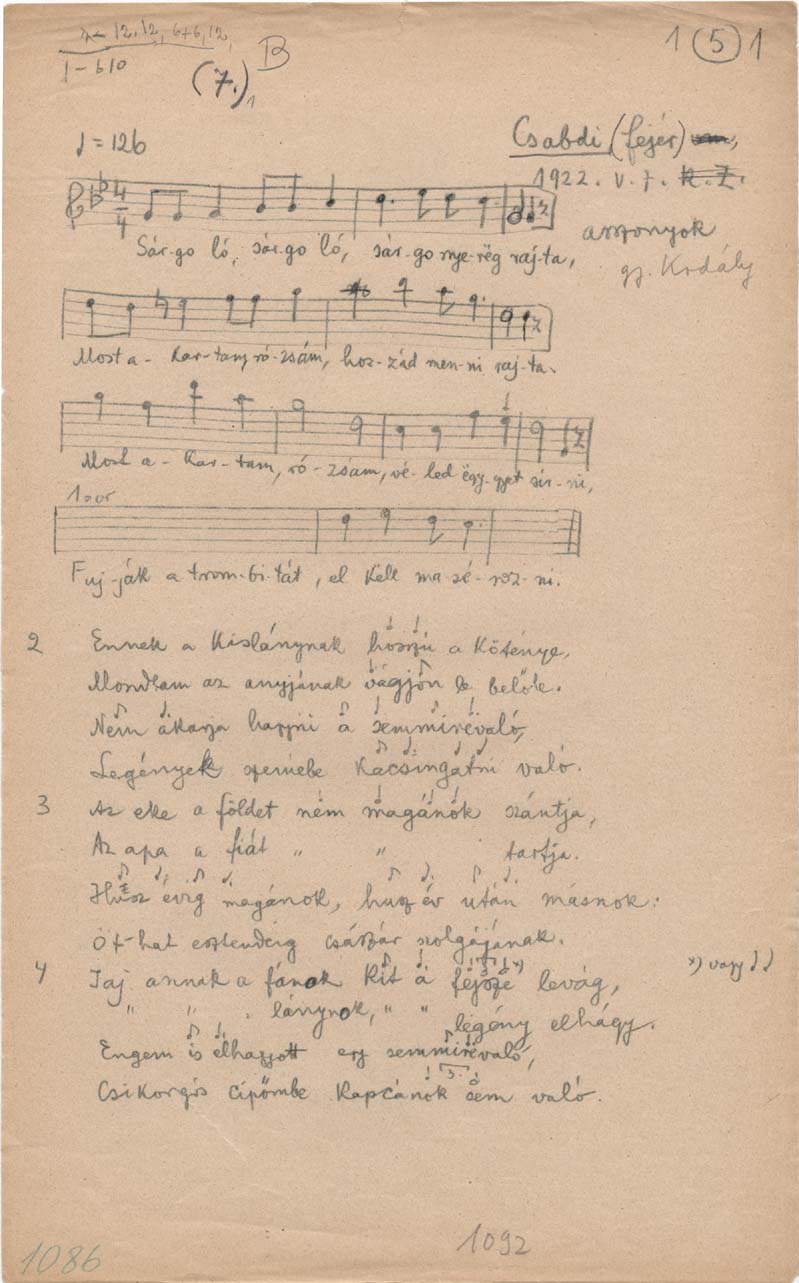 4- 12, 12, 6+6, 12,
1-b10
(7.)1 B
1 (5) 1
♩ = 126
Csabdi (fejér)
1922. V. 7. K. Z.
asszonyok
gy. Kodály
4/4
Sár-go ló, sár-go ló, sár-go nye-rëg raj-ta,
Most a- kar-tam, ró-zsám, hoz-zád men-ni raj-ta.
Most a- kar-tam, ró-zsám, vé-led ëgy-gyet sír-ni,
1=or
Fuj-ják a trom-bi-tát, el kell ma-sé-roz-ni.
2 Ennek a kislánynak hosszú a köténye,
Mondtam az anyjának vágjon le belőle.
Nem akarja hagyni a semmirëvaló,
Legények szemébe kacsingatni való.
3 Az eke a földet nem magánok szántja,
Az apa a fiát " " tartja.
Húsz évig magánok, husz év után másnok:
Öt-hat esztendeig császár szolgájának.
4 Jaj annak a fánok kit a fejsze x) levág,
" " " lánynok, " " legény elhágy.
x) vagy ♩ ♩
Engem is elhagyott egy semmirëvaló,
Csikorgós cipőmbe kapcánok sem való.
1086
1092